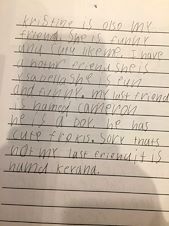 kristine is also my
friend. she is funny
and cute like me. I have
a nother friend she is
ysabella she is fun
and funny. my last friend
is named cameron
he is a boy. he has
cute frekis. Sory thats
not my last friend it is
namd kerana.